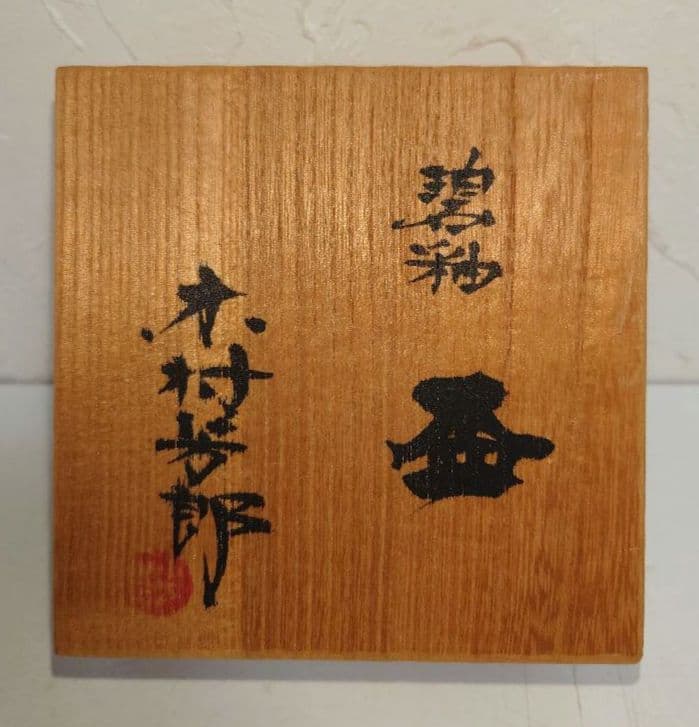 碧釉
木村芳郎